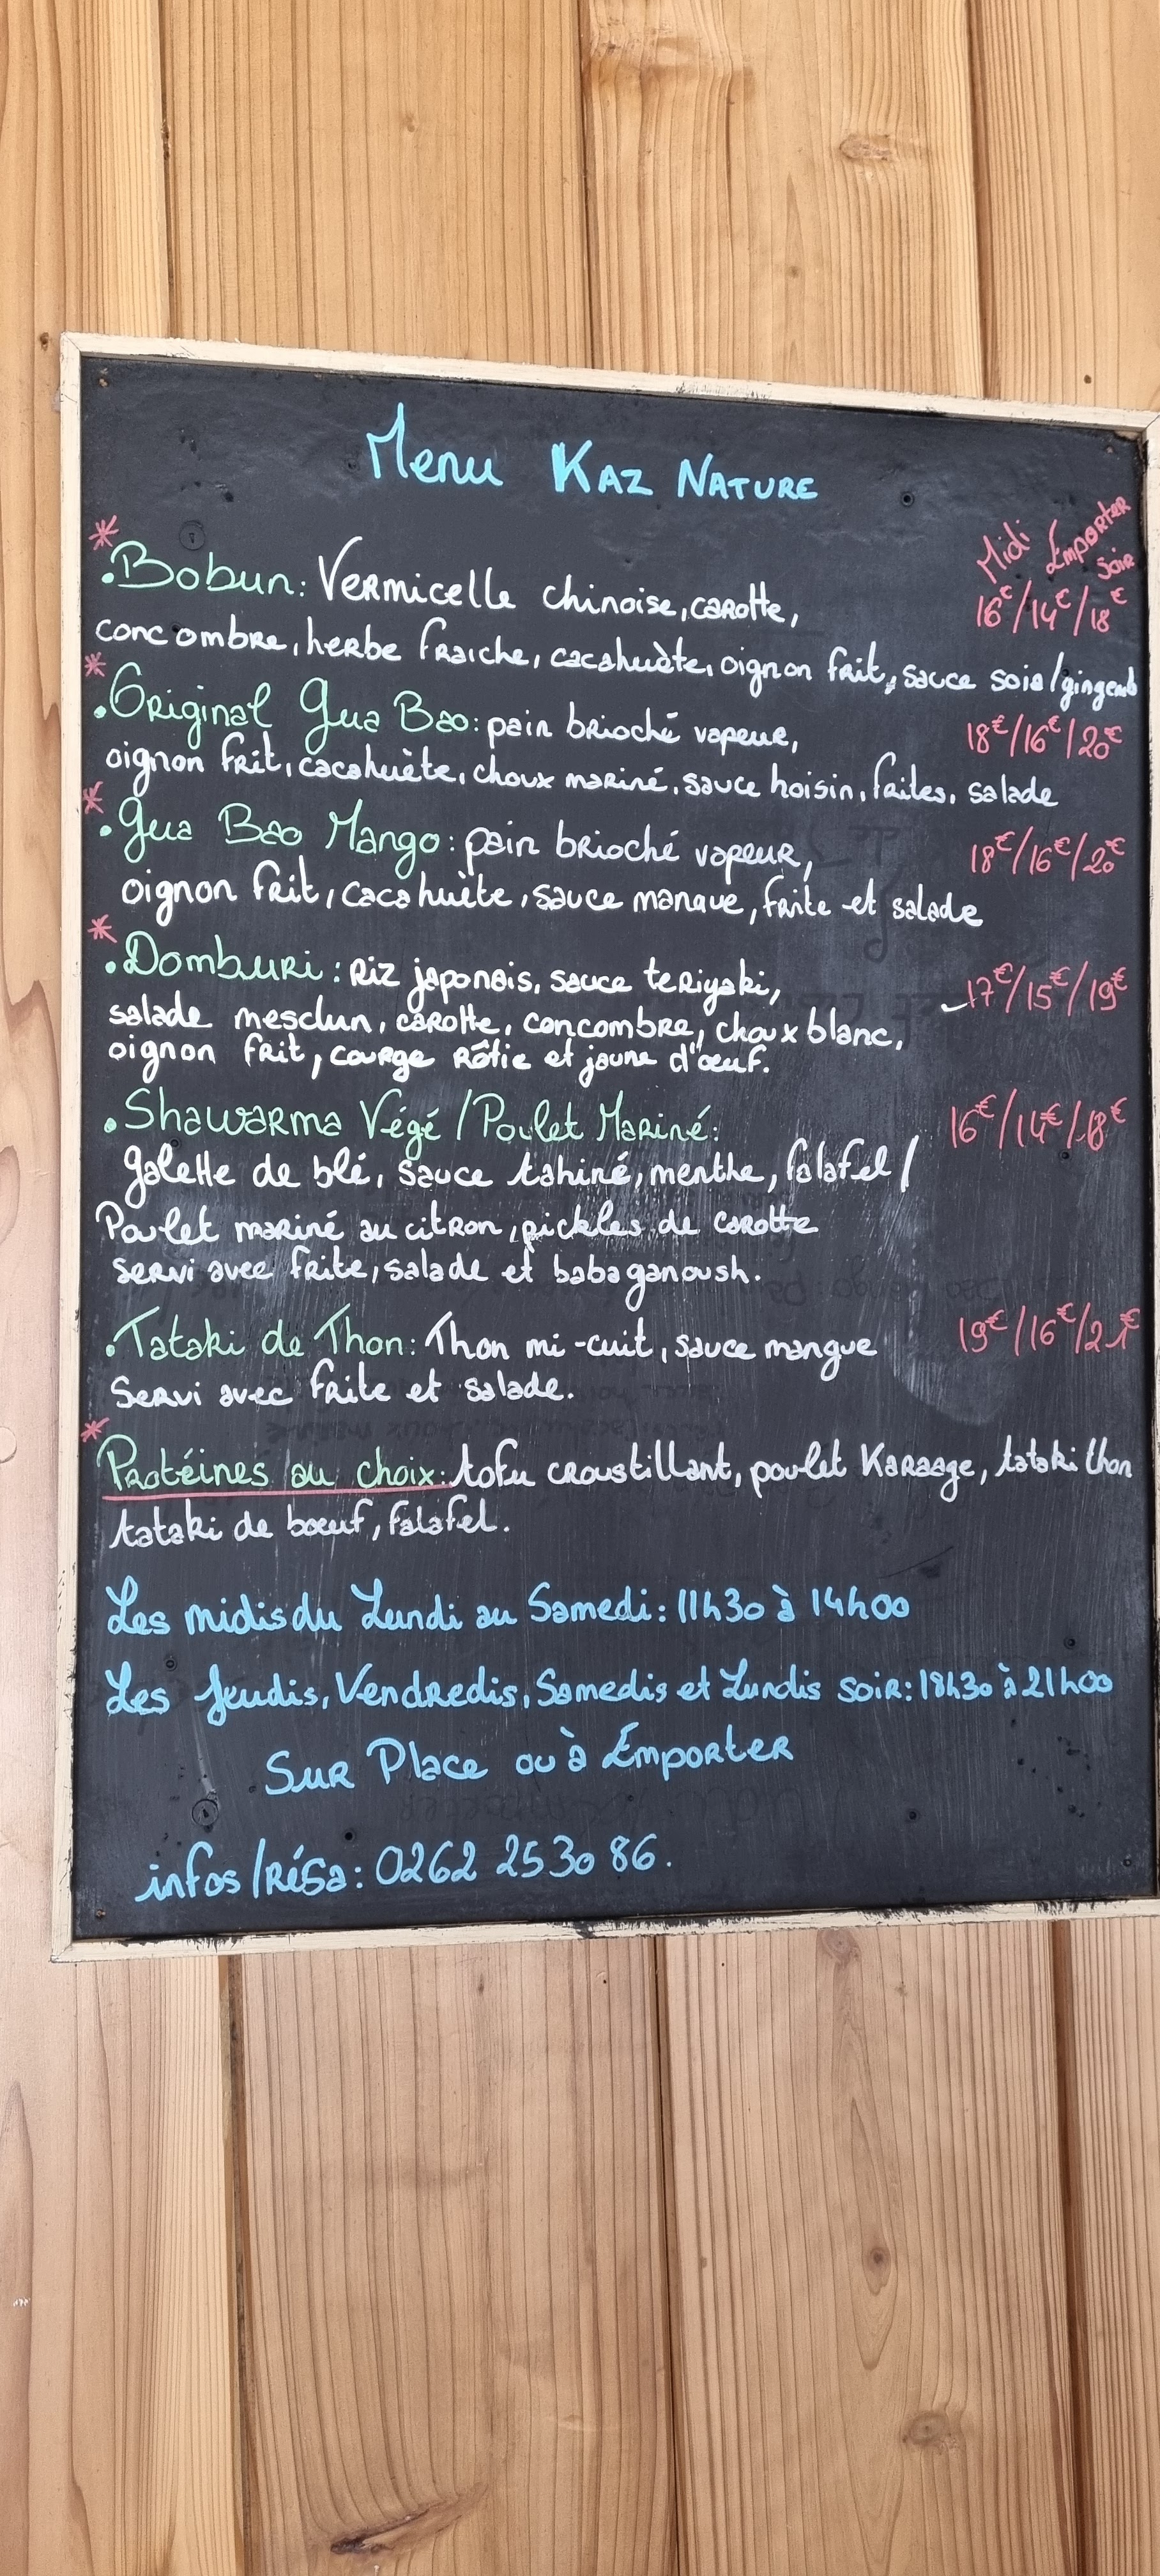 Menu KAZ NATURE
Midi Emporter Soir
*
• Bobun: Vermicelle chinoise, carotte, 16€/14€/18€
concombre, herbe fraiche, cacahuète, oignon frit, sauce soia/gingemb
*
• Original Gua Bao: pain brioché vapeur, 18€/16€/20€
oignon frit, cacahuète, choux mariné, sauce hoisin, frites, salade
*
• Gua Bao Mango: pain brioché vapeur, 18€/16€/20€
oignon frit, cacahuète, sauce mangue, frite et salade
*
• Domburi: Riz japonais, sauce teriyaki, 17€/15€/19€
salade mesclun, carotte, concombre, choux blanc,
oignon frit, courge rôtie et jaune d'œuf.
• Shawarma Végé / Poulet Mariné: 16€/14€/18€
galette de blé, sauce tahiné, menthe, falafel /
Poulet mariné au citron, pickles de carotte
servi avec frite, salade et babaganoush.
• Tataki de Thon: Thon mi-cuit, sauce mangue 19€/16€/21€
Servi avec frite et salade.
*
Protéines au choix: tofu croustillant, poulet Karaage, tataki thon
tataki de bœuf, falafel.
Les midis du Lundi au Samedi: 11h30 à 14h00
Les Jeudis, Vendredis, Samedis et Lundis soir: 18h30 à 21h00
Sur Place ou à Emporter
infos/Résa: 0262 25 30 86.